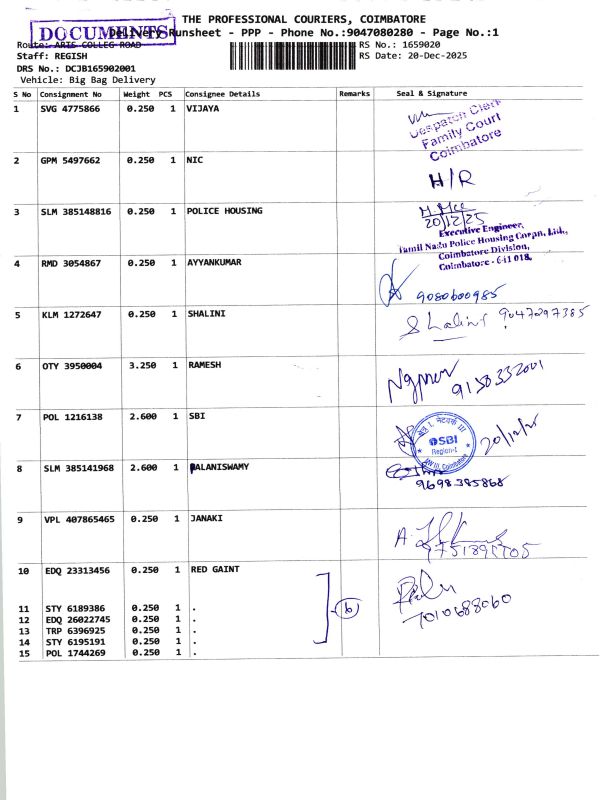 THE PROFESSIONAL COURIERS, COIMBATORE
DOCUMENTS
Delivery Runsheet - PPP - Phone No.:9047080280 - Page No.:1
Route: ARTS COLLEG ROAD
RS No.: 1659020
Staff: REGISH
RS Date: 20-Dec-2025
DRS No.: DCJB165902001
Vehicle: Big Bag Delivery
S No Consignment No Weight PCS Consignee Details Remarks Seal & Signature
1 SVG 4775866 0.250 1 VIJAYA
Despatch Clerk
Family Court
Coimbatore
2 GPM 5497662 0.250 1 NIC
H/R
3 SLM 385148816 0.250 1 POLICE HOUSING
20/12/25
Executive Engineer,
Tamil Nadu Police Housing Corpn. Ltd.,
Coimbatore Division,
Coimbatore - 641 018.
4 RMD 3054867 0.250 1 AYYANKUMAR
9080600985
5 KLM 1272647 0.250 1 SHALINI
Shalini 9047297385
6 OTY 3950004 3.250 1 RAMESH
9150332001
7 POL 1216138 2.600 1 SBI
SBI
Region-I
Coimbatore
20/12/25
8 SLM 385141968 2.600 1 PALANISWAMY
9698385868
9 VPL 407865465 0.250 1 JANAKI
A.
10 EDQ 23313456 0.250 1 RED GAINT
7010688060
11 STY 6189386 0.250 1 .
6
12 EDQ 26022745 0.250 1 .
13 TRP 6396925 0.250 1 .
14 STY 6195191 0.250 1 .
15 POL 1744269 0.250 1 .